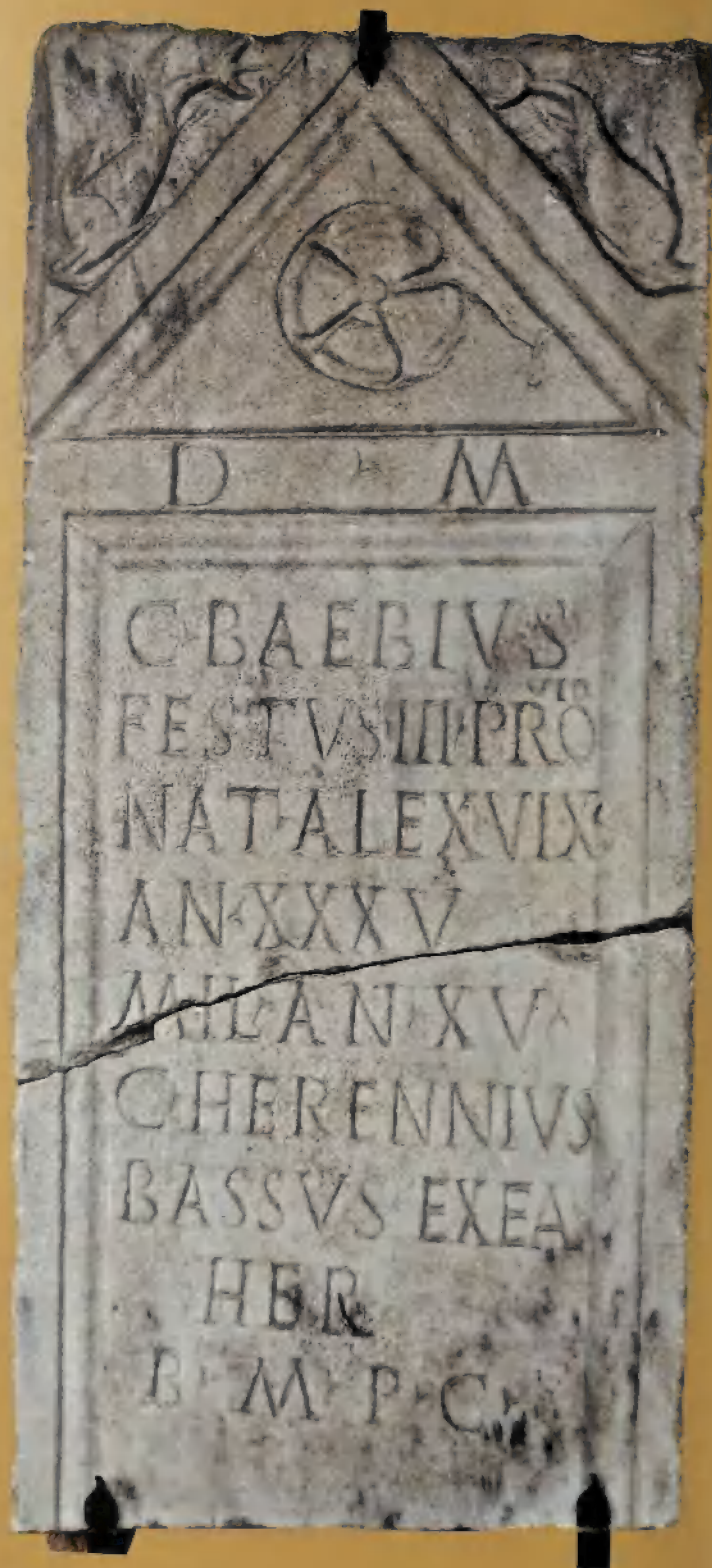 D M
C·BAEBIVS
FESTVS·III·PRO
VID
NAT·ALEX·VIX
AN·XXXV
MIL·AN·XV
C·HERENNIVS
BASSVS EXEA
HER
B·M·P·C